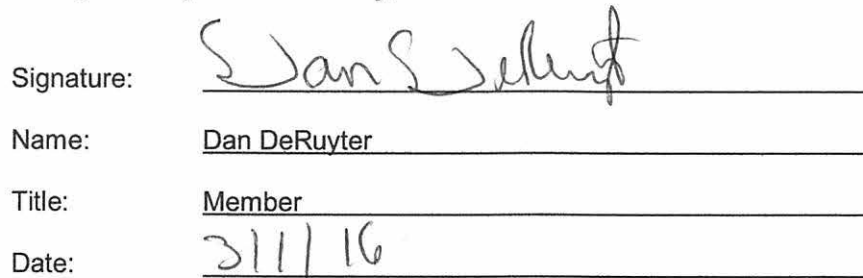 Signature: Dan DeRuyt
Name: Dan DeRuyter
Title: Member
Date: 3/1/16